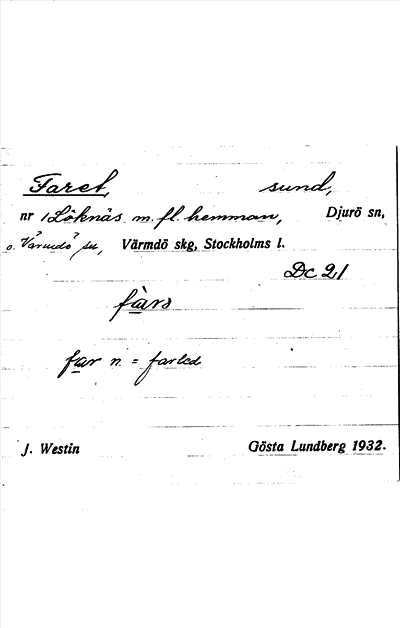 Faret, sund,
nr 1 Löknäs m. fl. hemman, Djurö sn,
o. Värmdö sn, Värmdö skg, Stockholms l.
Dc 21
far n. = farled
J. Westin Gösta Lundberg 1932.